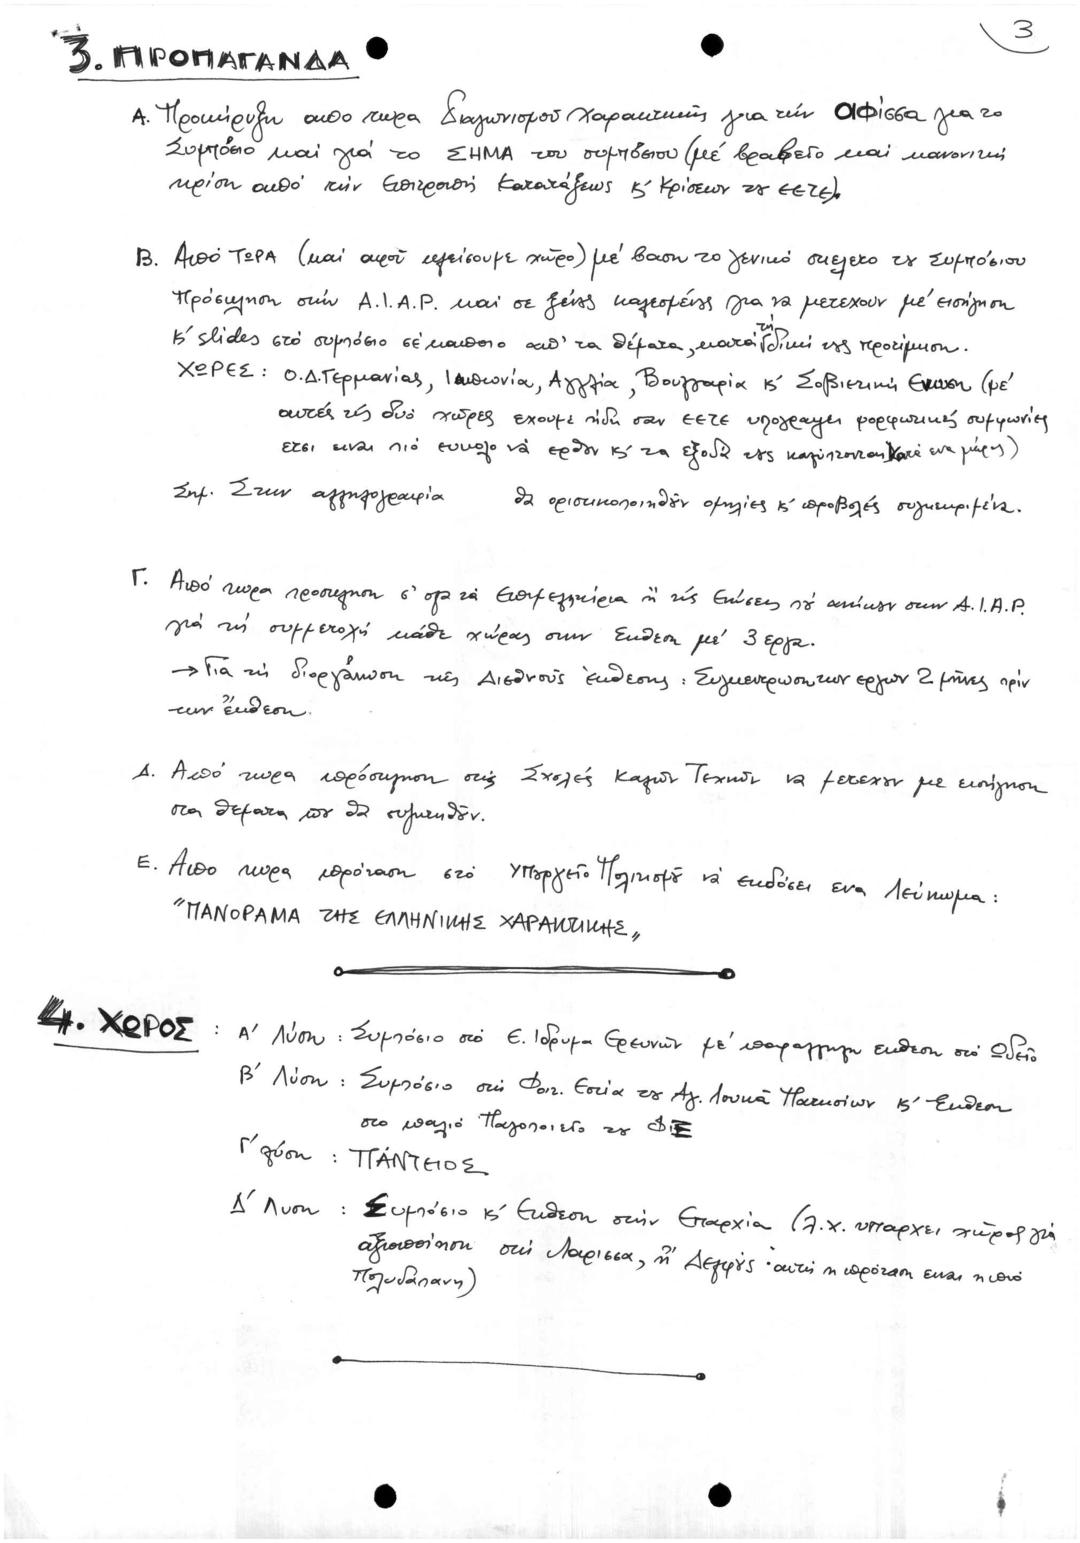 3
3. ΠΡΟΠΑΓΑΝΔΑ
Α. Προκήρυξη απο τωρα Διαγωνισμού Χαρακτικής για τήν αφίσσα για το
Συμπόσιο καί γιά το ΣΗΜΑ του συμπόσιου (μέ βραβείο και κανονική
κρίση από τήν Επιτροπή Κατατάξεως κ' Κρίσεων του ΕΕΤΕ).
Β. Από ΤΩΡΑ (καί αφού κλείσουμε χώρο) μέ βαση το γενικό σκελετο του Συμπόσιου
Πρόσκληση στήν A.I.A.P. και σε ξένους καλεσμένους για να μετεχουν μέ εισήγηση
κ' slides στό συμπόσιο σέ καποιο απ' τα θέματα, κατά τή δική τους προτίμηση.
ΧΩΡΕΣ : Ο.Δ.Γερμανίας, Ιαπωνία, Αγγλία, Βουλγαρία κ' Σοβιετική Ενωση (μέ
αυτές τίς δυό χώρες εχουμε ήδη σαν ΕΕΤΕ υπογράψει μορφωτικές συμφωνίες
ετσι ειναι πιό ευκολο νά ερθουν κ' τα εξοδά τους καλύπτονται κατά ενα μέρος)
Σημ. Στην αλληλογραφία θα οριστικοποιηθούν ομιλίες κ' προβολές συγκεκριμένα.
Γ. Από τωρα προσκληση σ' ολα τά Επιμελητήρια ή τίς Ενώσεις πού ανήκουν στην A.I.A.P.
γιά τή συμμετοχή κάθε χώρας στην Εκθεση μέ 3 εργα.
→ Γιά τή διοργάνωση τής Διεθνούς έκθεσης : Συγκεντρωση των εργων 2 μήνες πρίν
την έκθεση.
Δ. Από τωρα πρόσκληση στίς Σχολές Καλών Τεχνών να μετεχουν με εισήγηση
στα θεματα που θα συζητηθούν.
Ε. Απο τωρα πρόταση στό Υπουργείο Πολιτισμού νά εκδόσει ενα λεύκωμα :
"ΠΑΝΟΡΑΜΑ ΤΗΣ ΕΛΛΗΝΙΚΗΣ ΧΑΡΑΚΤΙΚΗΣ„
4. ΧΩΡΟΣ : Α' Λύση : Συμπόσιο στό Ε. Ιδρυμα Ερευνών μέ παράλληλη εκθεση στό Ωδείο
Β' Λύση : Συμπόσιο στή Φοιτ. Εστία του Αγ. Λουκά Πατησίων κ' Έκθεση
στο παλιό Παγοποιείο του ΦΙΞ
Γ' λύση : ΠΆΝΤΕΙΟΣ
Δ' Λυση : Συμπόσιο κ' Εκθεση στήν Επαρχία (λ.χ. υπαρχει χώρος γιά
αξιοποίηση στή Λαρισσα, ή Δελφούς · αυτή η πρόταση ειναι η πιό
πολυδάπανη)